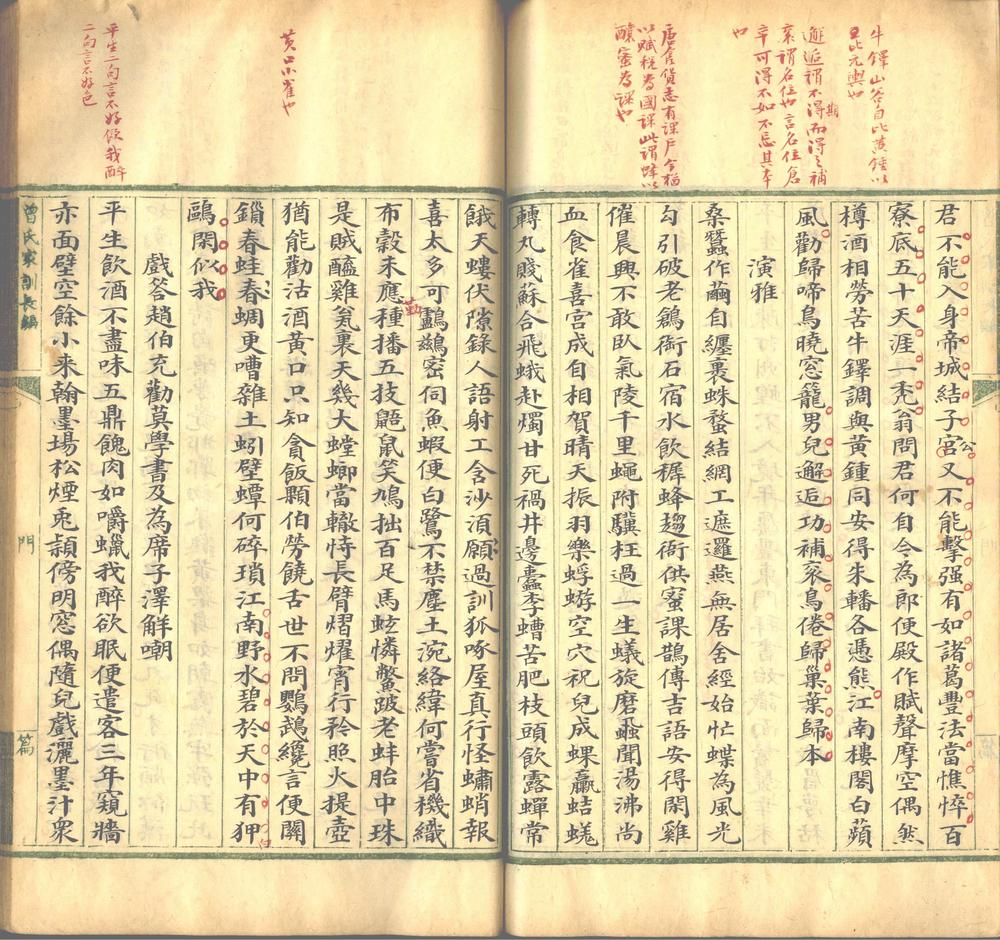 牛鐸山谷自比黃鍾以
王比元輿也
邂逅謂不期而得之補
衮謂名位也言名位倉
卒可得不如不忘其本
也
唐食貨志有課戶今
以賦稅為國課此謂蜂以
釀蜜為課也
君不能入身帝城結子宮公又不能擊强有如諸葛豐法當憔悴百
寮底五十天涯一禿翁問君何自今為郎便殿作賦聲摩空偶然
樽酒相勞苦牛鐸調與黃鍾同安得朱轓各憑熊江南樓閣白蘋
風勸歸啼鳥曉窓籠男兒邂逅功補衮鳥倦歸巢葉歸本
演雅
桑蠶作繭自纏裹蛛蝥結網工遮邏燕無居舍經始忙蝶為風光
勾引破老鶬銜石宿水飲穉蜂趨衙供蜜課鵲傳吉語安得閑雞
催晨興不敢臥氣陵千里蠅附驥枉過一生蟻旋磨蝨聞湯沸尚
血食雀喜宮成自相賀晴天振羽樂蜉蝣空穴祝兒成蜾蠃蛣蜣
轉丸賤蘇合飛蛾赴燭甘死禍井邊蠹李螬苦肥枝頭飲露蟬常
餓天螻伏隙錄人語射工含沙湏願過訓狐啄屋真行怪蠨蛸報
喜太多可鸕鶿密伺魚蝦便白鷺不禁塵土涴絡緯何嘗省機織
布穀未應勤種播五技鼯鼠笑鳩拙百足馬蚿憐鱉跛老蚌胎中珠
是賊醯雞瓮裏天幾大螳螂當轍恃長臂熠燿宵行矜照火提壺
猶能勸沽酒黃口只知貪飯顆伯勞饒舌世不問鸚鵡纔言便關
鎖春蛙春蜩更嘈雜土蚓壁蟫何碎瑣江南野水碧於天中有狎白
鷗閑似我
戲答趙伯充勸莫學書及為席子澤解嘲
平生飲酒不盡味五鼎餽肉如嚼蠟我醉欲眠便遣客三年窺牆
亦面壁空餘小來翰墨場松煙兎頴傍明窓偶隨兒戲灑墨汁衆
黃口小雀也
平生二句言不好做我醉
二句言不好色
曾氏家訓長編
門
篇